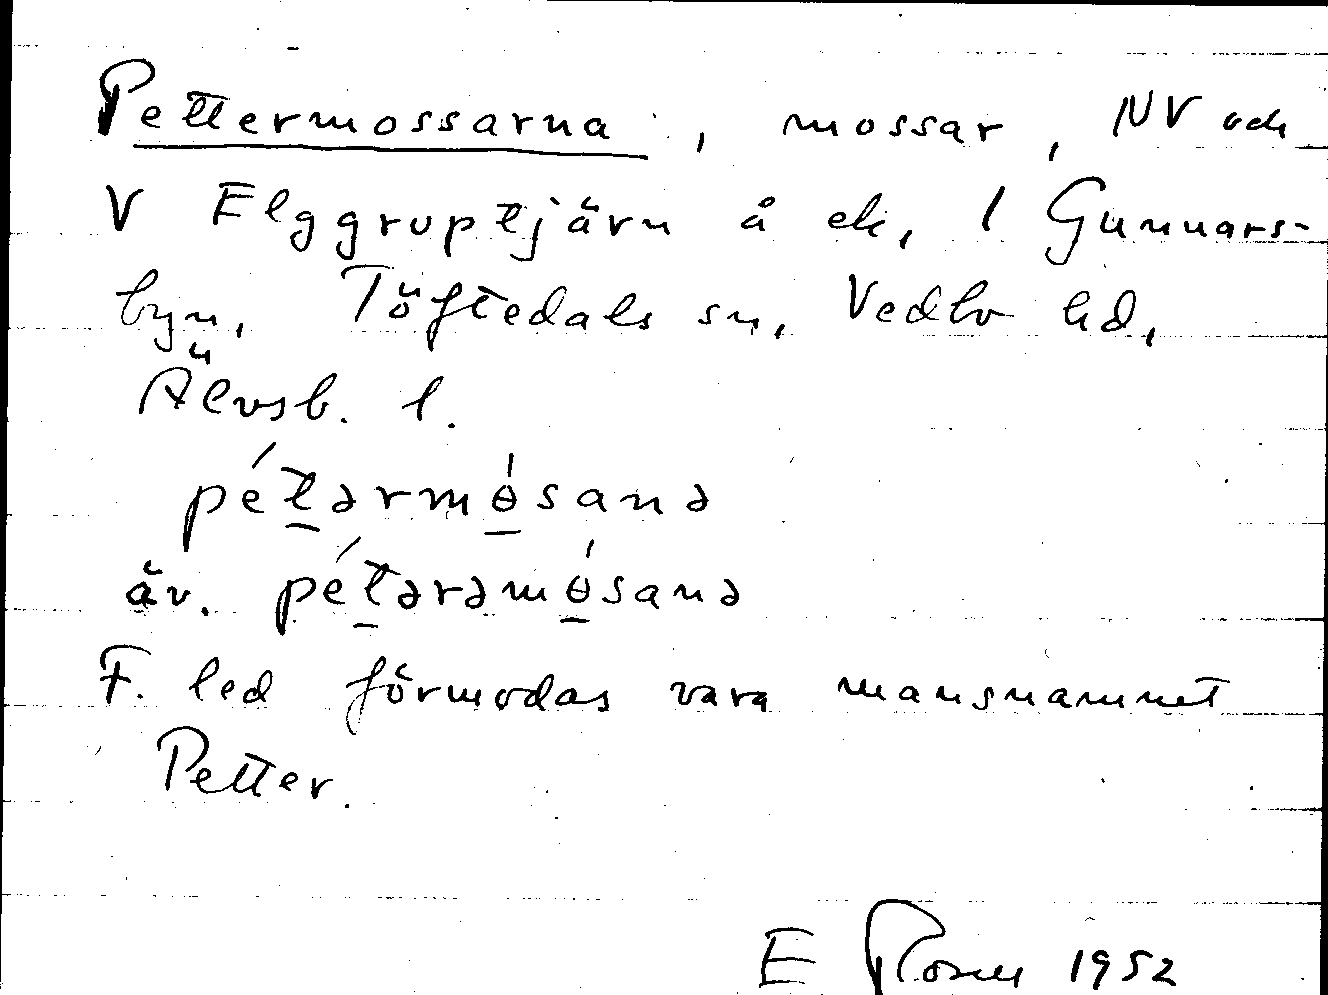 Pettermossarna, mossar, NV och
V Elggruptjärn å ek, 1 Gunnars-
byn, Töftedals sn, Vedbo hd,
Älvsb. l.
pét̲ərmɵ̲́sanə
äv. pét̲ərəmɵ̲́sanə
F. led förmodas vara mansnamnet
Petter.
E 1952